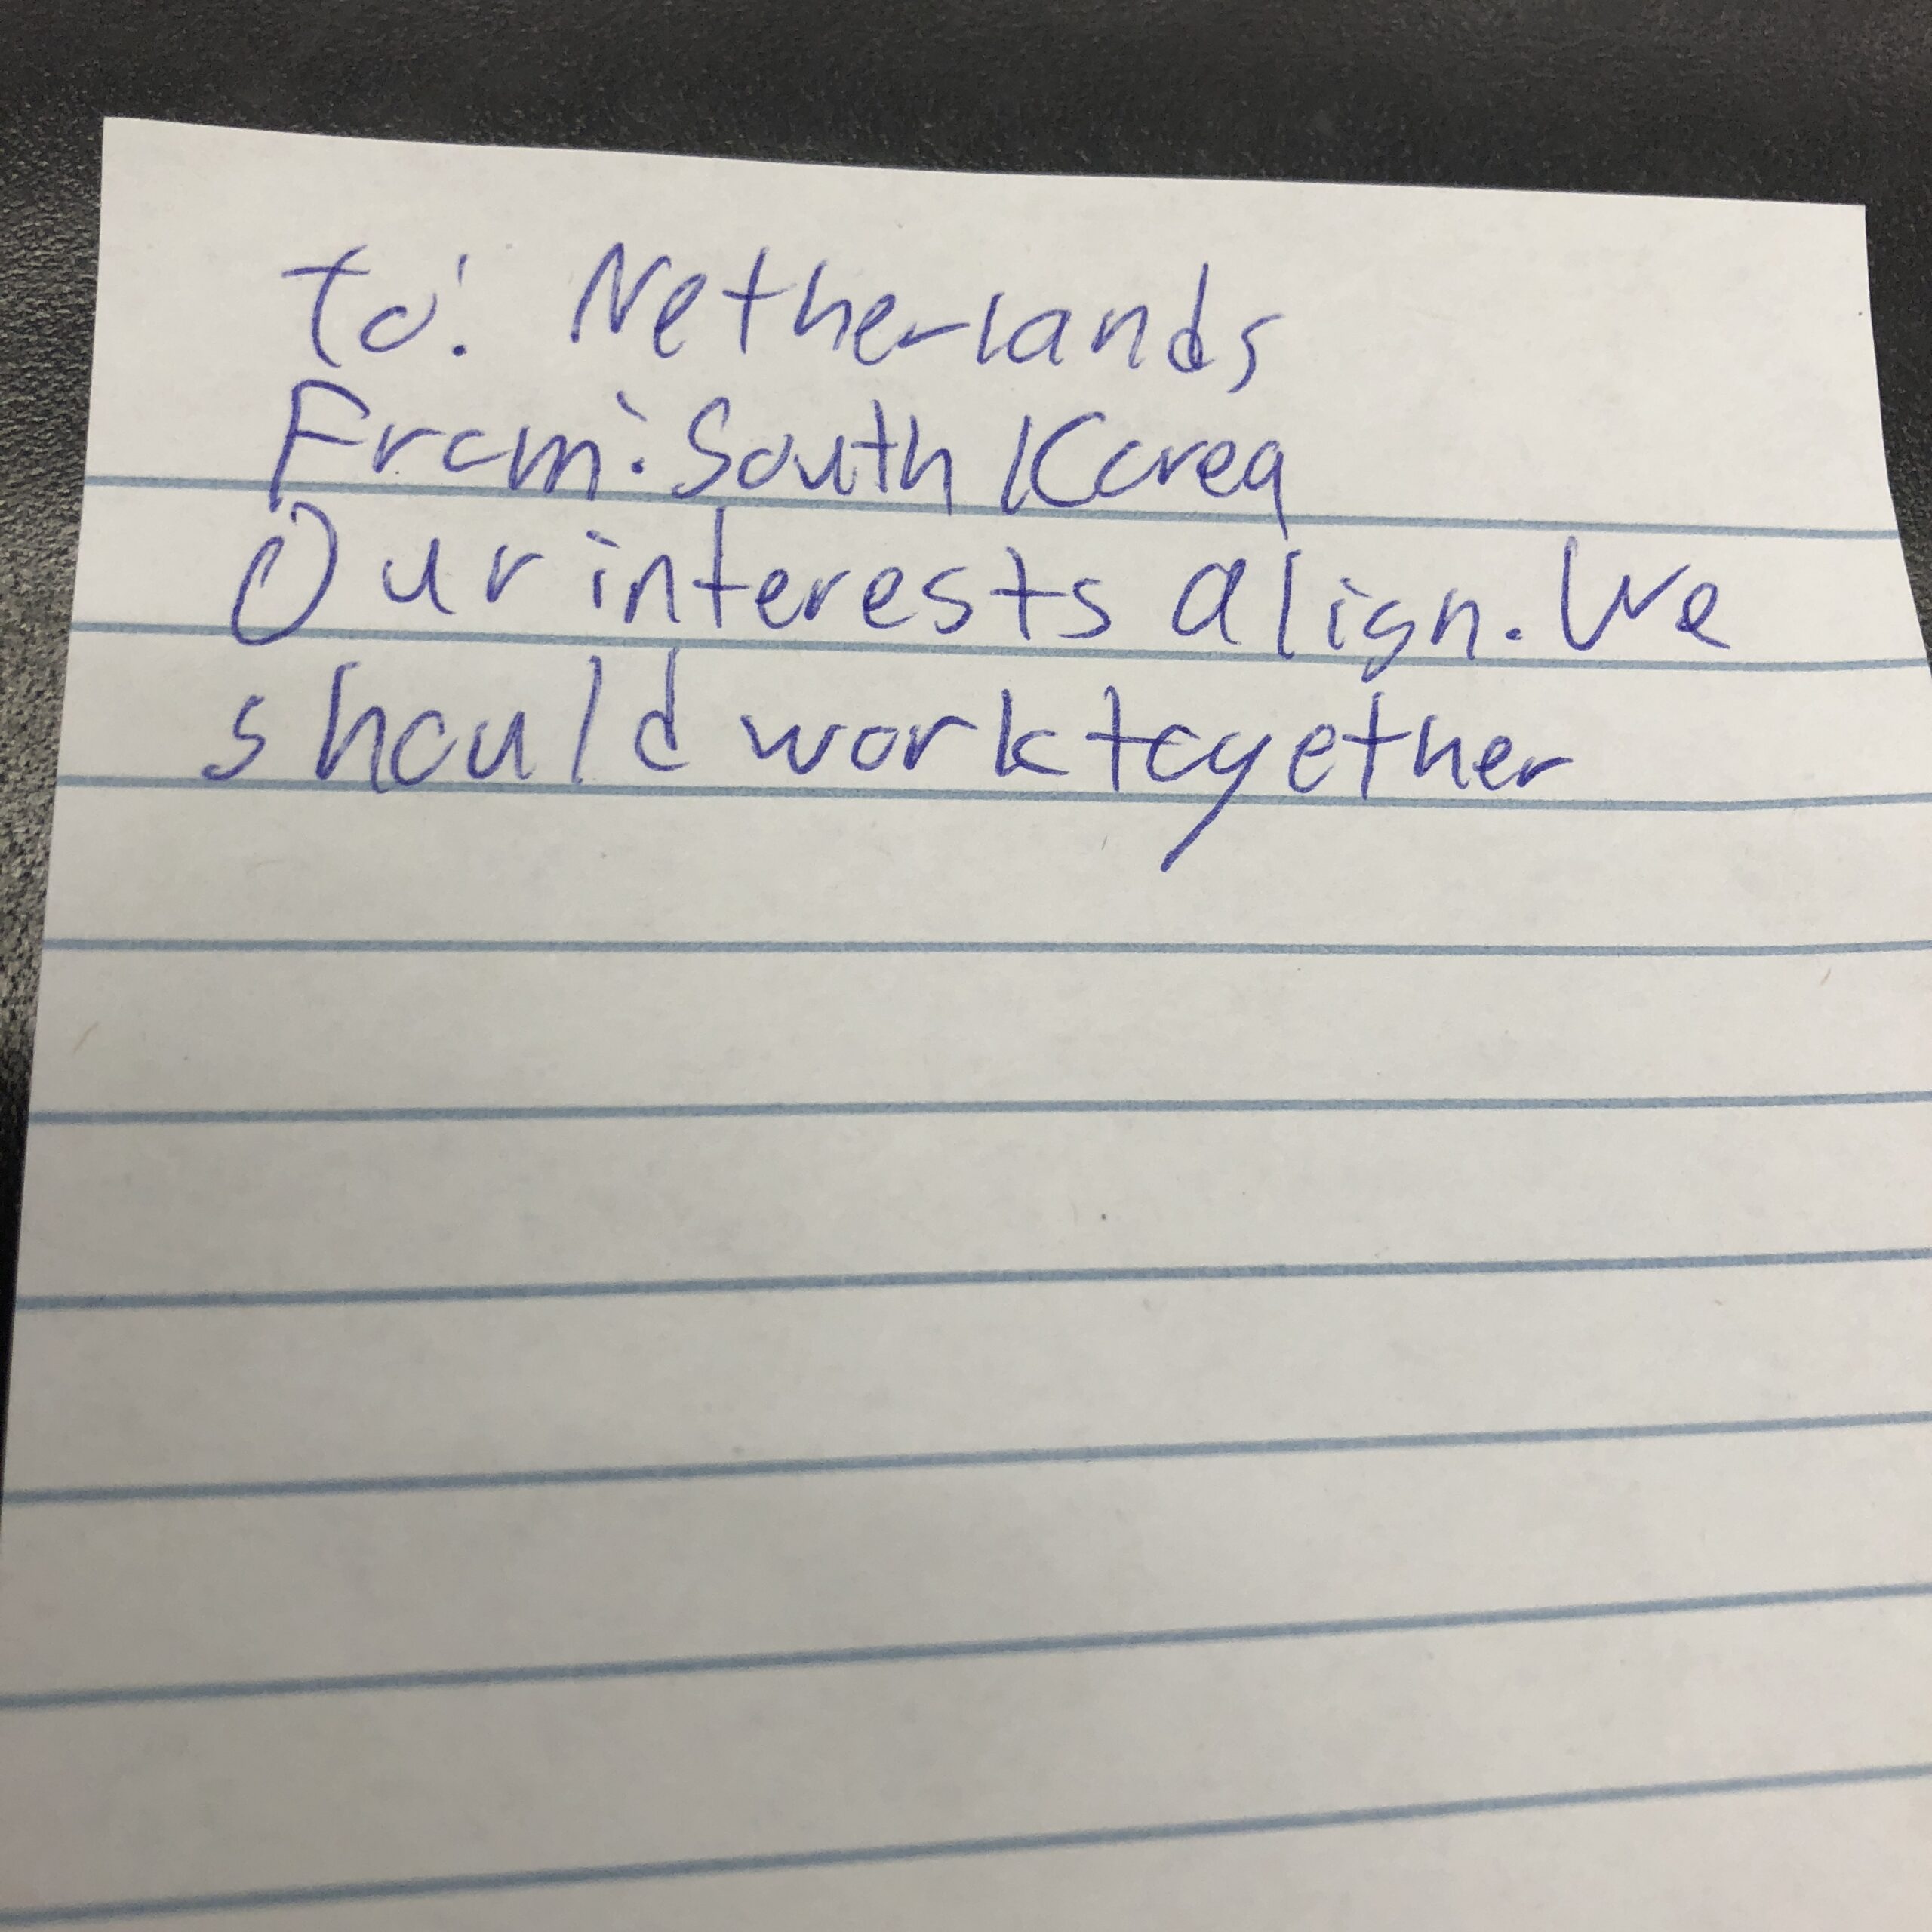 To: Netherlands
From: South Korea
Our interests align. We
should work together